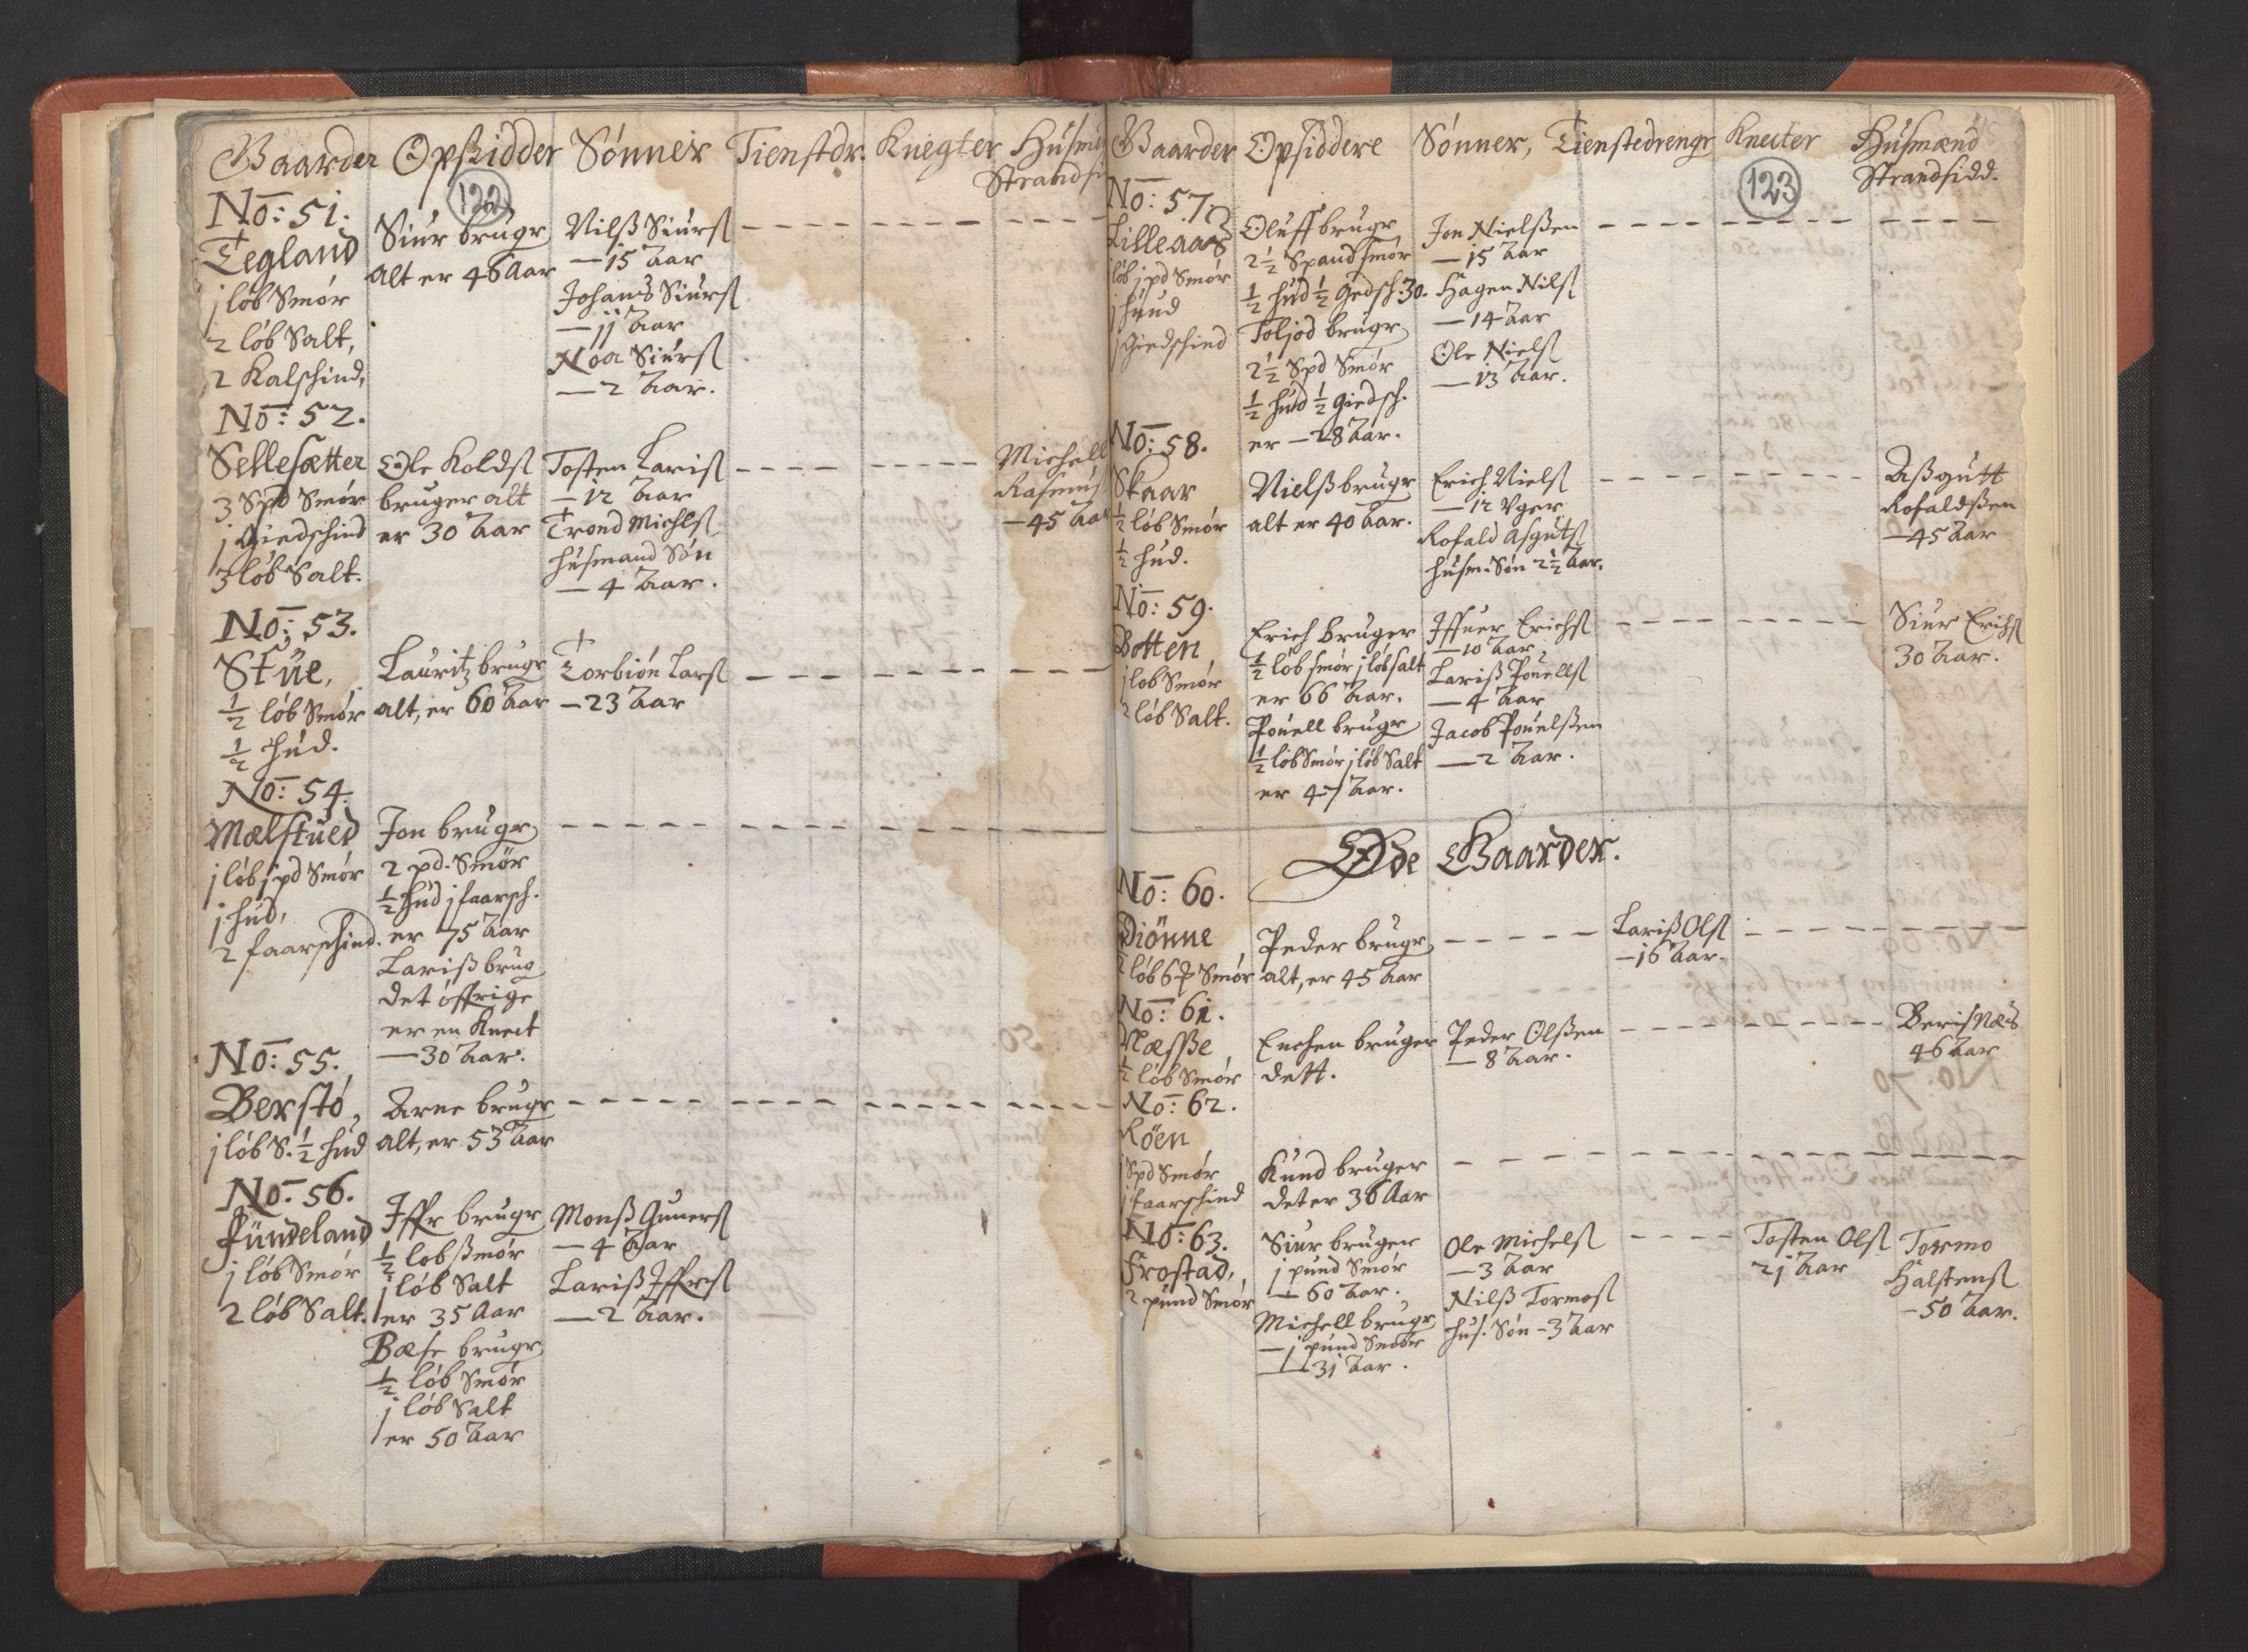 Gaarder Opsidder Sønner Tienstdr. Knegter Husm
Strandsi
122
No: 51.
Tegland
j løb Smør
2 løb Salt,
2 Kalschind,
Siur brugr
alt er 46 Aar
Nilß Siurs
— 15 Aar
Johans Siurs
— jj Aar
Noa Siurs
— 2 Aar.
No: 52.
Sellesætter
3 Spd Smør
j Giedschind
3 løb Salt.
Ole Kolds
bruger alt
er 30 Aar
Tosten Laris
— 12 Aar
Trond Michls
husmand Søn
— 4 Aar.
Michell
Rasmus
— 45 Aar
No: 53.
Stüe,
½ løb Smør
½ hud.
Lauritz brugr
alt, er 60 Aar
Torbiön Lars
— 23 Aar
No: 54.
Mælstued
j løb j pd Smør
j hud,
2 faarschind.
Jon brugr
2 pd. Smör
½ hud j faarsch.
er 75 Aar
Lariß brug
det öffrige
er en Knect
— 30 Aar.
No: 55.
Berstö,
j løb S. ½ hud
Arne brugr
alt, er 53 Aar
No. 56.
fündeland
j løb Smør
2 løb Salt.
Iffr brugr
½ løb ßmør
j løb Salt
er 35 Aar
Bæse brugr
½ løb Smør
j løb Salt
er 50 Aar
Monß Guners
— 4 Aar
Lariß Iffrs
— 2 Aar.
Gaarder Opsiddere Sønner, Tienstedrengr Knecter Husmænd
Strandsidd.
123
No: 57.
Lilleaas
løb j pd Smør
j huud
j Giedschind
Oluff brugr
2½ Spand smør
½ hud ½ Gedsch. 30.
Toljod brugr
2½ Spd Smör
½ hud ½ Giedsch.
er — 28 Aar.
Jon Nielßen
— 15 Aar
Hagen Nils
— 14 Aar
Ole Niels
— 13 Aar.
No: 58.
Skaar
½ løb Smør
½ hud.
Nielß brugr
alt er 40 Aar.
Erich Niels
— 12 Uger
Rofald Asguts
husm. Søn 2½ Aar.
Aßgutt
Rofaldßen
— 45 Aar
No: 59.
Botten
j løb Smør
2 løb Salt.
Erich bruger
½ løb smør j løb salt
er 66 Aar.
Pouell brugr
½ løb Smør j løb Salt
er 47 Aar.
Iffuer Erichs
— 10 Aar,
Lariß Pouells
— 4 Aar
Jacob Pouelßen
— 2 Aar.
Siur Erichs
30 Aar.
Øde Gaarder.
No: 60.
Diönne
løb 6 Smør
Peder brugr
alt, er 45 Aar
Lariß Ols
— 16 Aar.
No: 61.
Næsße
½ løb Smør
Enchen bruger
dett.
Peder Olßen
— 8 Aar.
Beris Næs
46 Aar
No: 62.
Röen
j Spd Smør
j faarschind
Kund bruger
det er 36 Aar
No: 63.
Frostad,
2 pund Smør
Siur bruger
j pund Smør
— 60 Aar.
Michell brugr
— j pund Smør
— 31 Aar.
Ole Michels
— 3 Aar
Nilß Tormos
hus. Søn — 3 Aar
Tosten Ols
2j Aar
Tormo
Halstens
— 50 Aar.